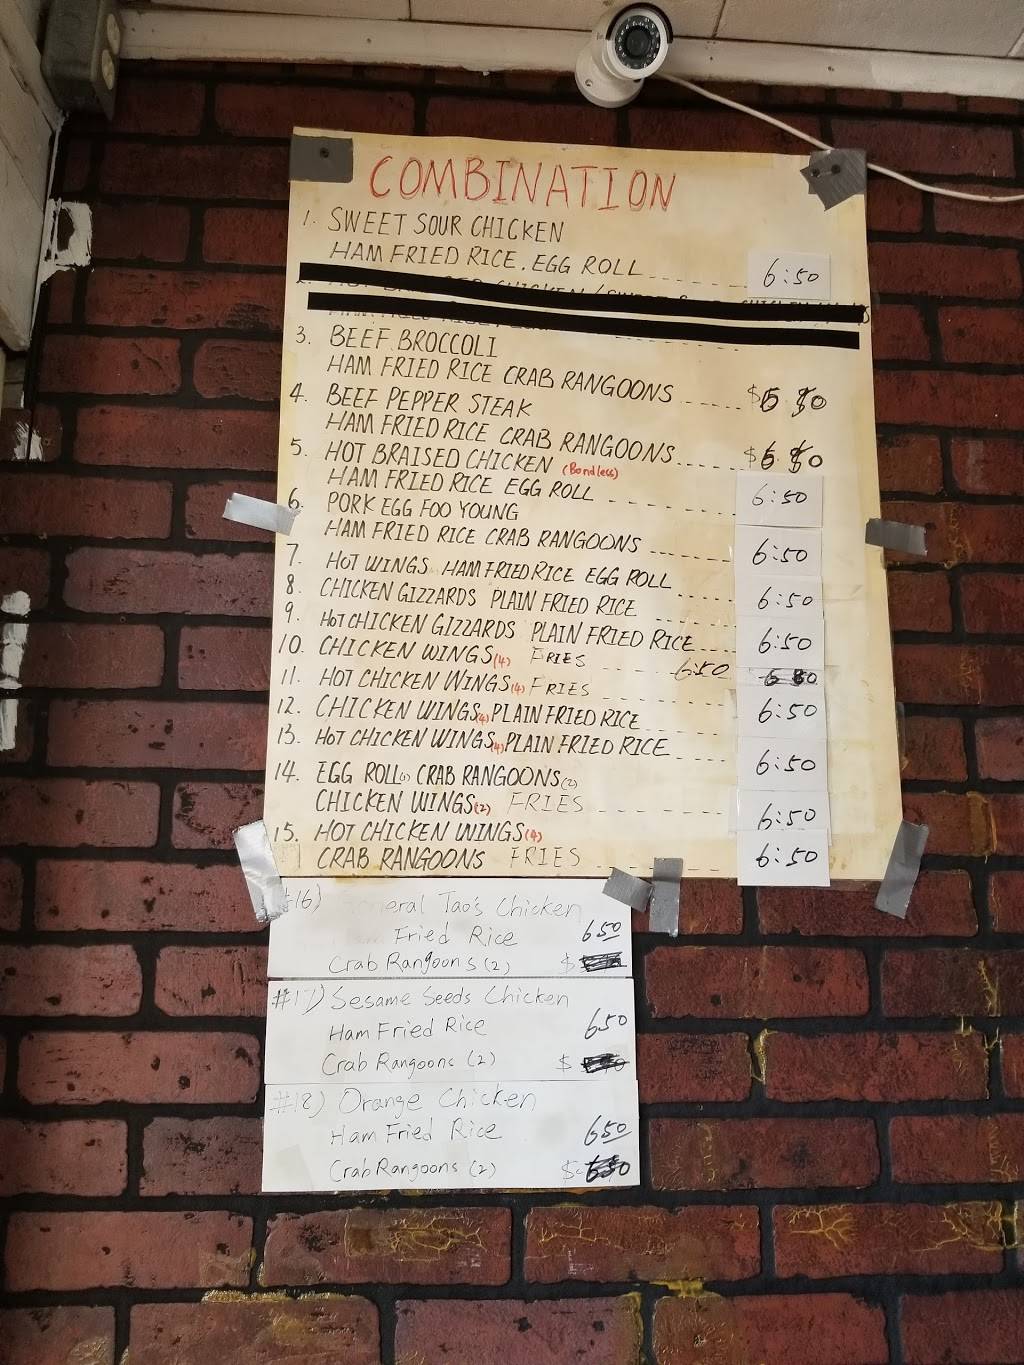 COMBINATION
1. SWEET SOUR CHICKEN
HAM FRIED RICE. EGG ROLL 6:50
3. BEEF BROCCOLI
HAM FRIED RICE CRAB RANGOONS $
4. BEEF PEPPER STEAK
HAM FRIED RICE CRAB RANGOONS $
5. HOT BRAISED CHICKEN (Bondless)
HAM FRIED RICE EGG ROLL 6:50
6. PORK EGG FOO YOUNG
HAM FRIED RICE CRAB RANGOONS 6:50
7. HOT WINGS HAM FRIED RICE EGG ROLL 6:50
8. CHICKEN GIZZARDS PLAIN FRIED RICE
9. HOT CHICKEN GIZZARDS PLAIN FRIED RICE 6:50
10. CHICKEN WINGS (4) FRIES 6:50
11. HOT CHICKEN WINGS (4) FRIES 6:50
12. CHICKEN WINGS (4) PLAIN FRIED RICE
13. HOT CHICKEN WINGS (4) PLAIN FRIED RICE 6:50
14. EGG ROLL (1) CRAB RANGOONS (2)
CHICKEN WINGS (2) FRIES 6:50
15. HOT CHICKEN WINGS (4)
CRAB RANGOONS FRIES 6:50
#16) General Tao's Chicken
Fried Rice 650
Crab Rangoons (2) $
#17) Sesame Seeds Chicken
Ham Fried Rice 650
Crab Rangoons (2) $
#18) Orange Chicken
Ham Fried Rice 650
Crab Rangoons (2) $